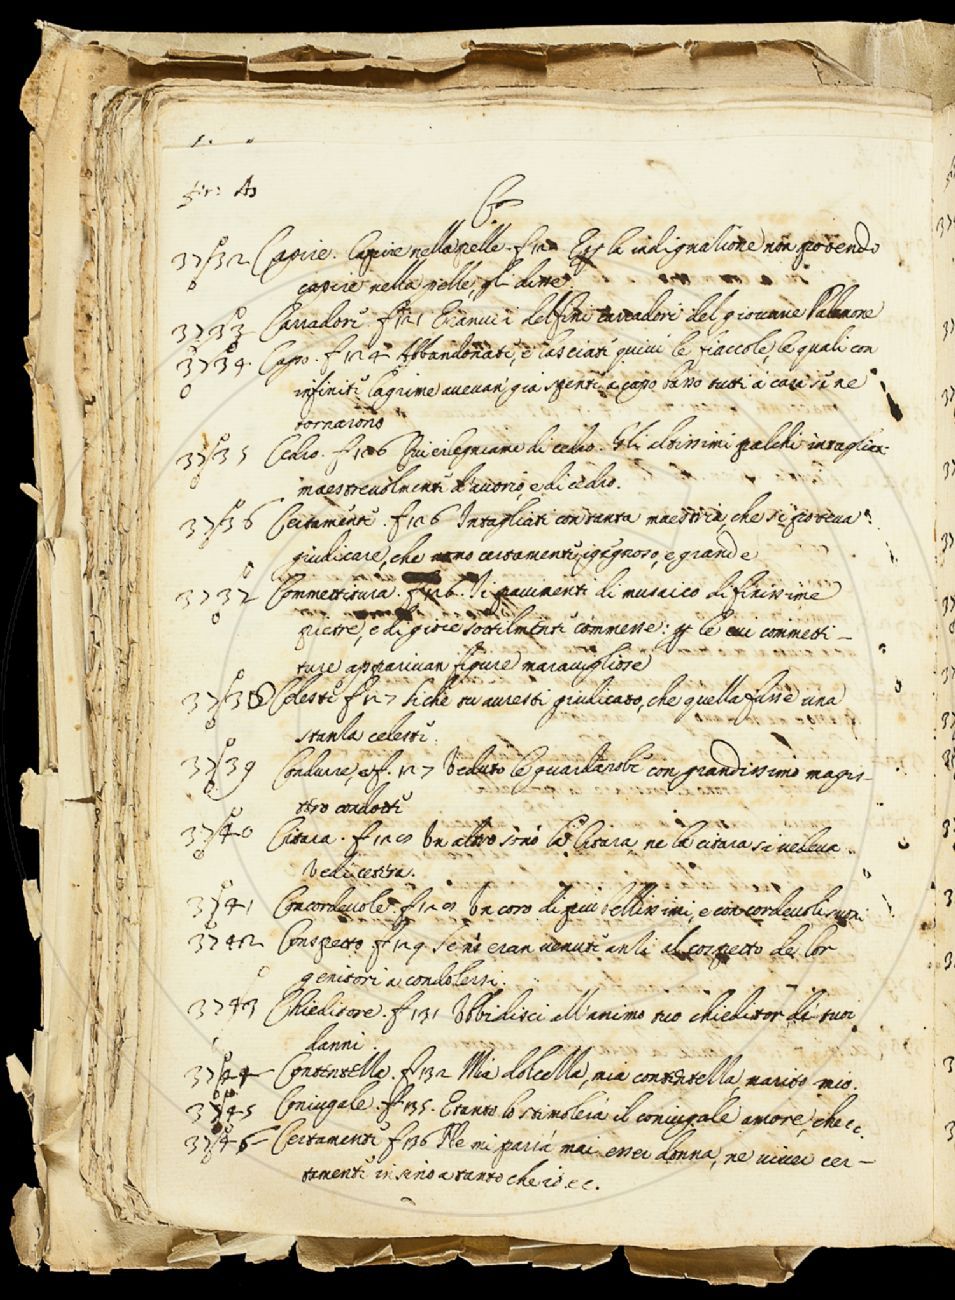 Co
3732 Capire. Capire nella pelle. f 120 E per la indignatione non potendo
capire nella pelle, gli disse
3733 Cavadori. f 121 Eranvi i delfini cavadori del giovane Palemone
3734 Capo. f 124 Abbandonati, e lasciati quivi le fiaccole, le quali con
infiniti lagrime avevan già spenti a capo basso tutti a casa se ne
tornarono
3735 Cedro. f 126 di cedro. Gli altissimi palchi intagliati
maestrevolmenti d'avorio, e di cedro.
3736 Certamenti. f 126 Intagliati con tanta maestria, che si poteva
giudicare, che certamenti, e grande
3737 Commettitura. f 126. I pavimenti di musaico di finissime
pietre, e di gioie sottilmenti commesse: per le cui commetti-
ture apparivan figure maravigliose
3738 Celesti f 127 Sichè tu avresti giudicato, che quella fusse una
stanza celesti.
3739 Condurre, f. 127 Veduto le guardarobe con grandissimo magis-
tero condotti
3740 Citara. f 128 Un altro sonò la Citara, ne la citara si vedeva
3741 Concordevole. f 128 Un coro di più bellissimi, e concordevolissimi
3742 Conspetto f 129 Se no eran venuti anzi al cospetto de lor
genitori a condolersi.
3743 Chieditore. f 131 Ubbidisci all'animo tuo chieditor di tuoi
danni
3744 Contentella. f 132 Mia dolcella, mia contentella marito mio.
3745 Coniugale. f 135. E tanto lo stimolava il coniugale amore, che ec.
3746 Certamenti f 136 Ne mi parrà mai esser donna, ne viver cer-
tamenti insino a tanto che io ec.